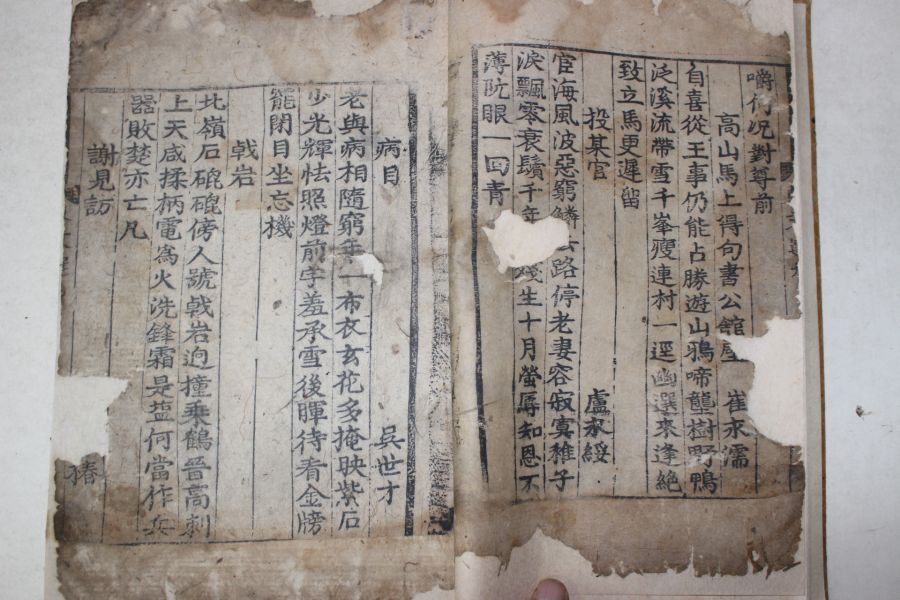 嚼何況對尊前
高山馬上得句書公館壁 崔永濡
自喜從王事仍能占勝遊山鴉啼壟樹野鴨
泛溪流帶雪千峯瘦連村一逕幽選來逢絶
致立馬更遲留
投某官 盧永綏
宦海風波惡窮鱗 路停老妻容寂寞稚子
淚飄零衰鬚千 生十月螢辱知恩不
薄阮眼一回青
病目 吳世才
老與病相隨窮年一布衣玄花多掩映紫石
少光輝怯照燈前字羞承雪後暉待看金牓
罷閉目坐忘機
戟岩
北嶺石磈磈傍人號戟岩逈撞乘鶴晉高刺
上天咸揉柄電爲火洗鋒霜是塩何當作兵
器敗楚亦亡凡
謝見訪
椿